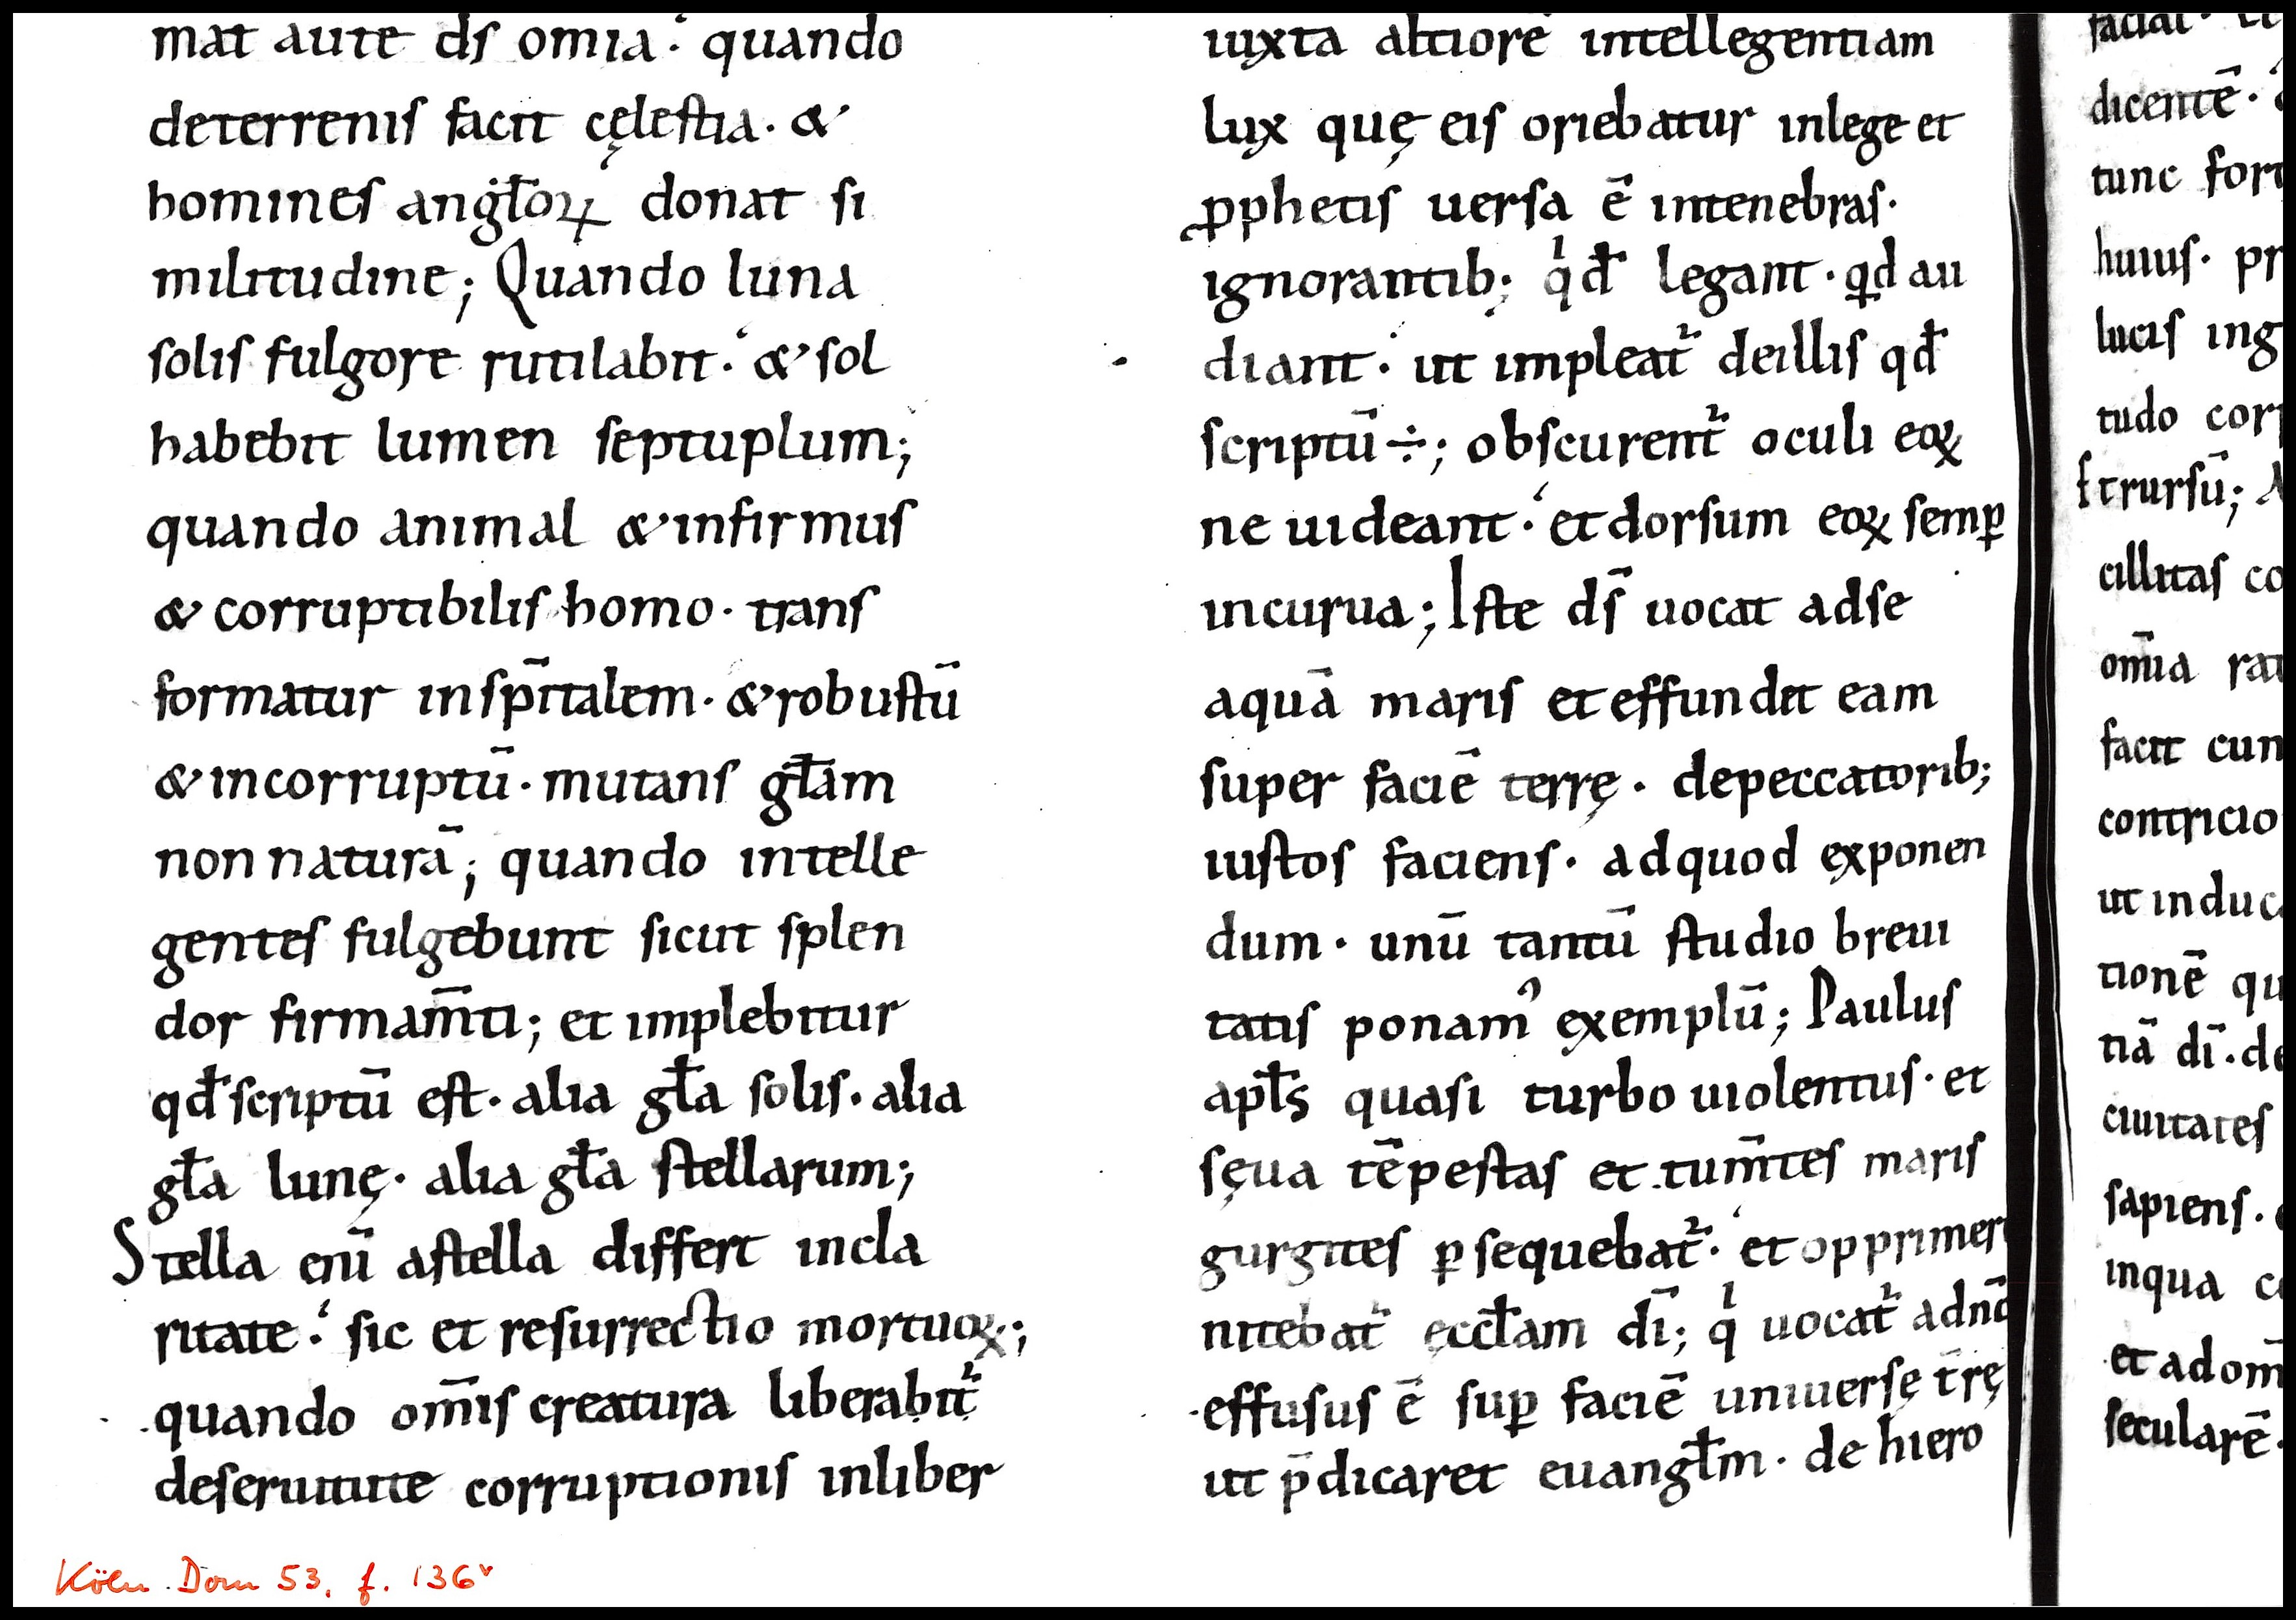 mat aute ds̄ omia · quando
deterrenis facit cęlestia · &
homines angłoꝝ donat si
militudine; Quando luna
solis fulgore rutilabit · & sol
habebit lumen septuplum;
quando animal & infirmus
& corruptibilis homo · trans
formatur insp̄italem · & robustū
& incorruptū · mutans głam
non naturā; quando intelle
gentes fulgebunt sicut splen
dor firmam̄ti; et implebitur
qđ scriptū est · alia gła solis · alia
gła lunę · alia gła stellarum;
Stella enī astella differt incla
ritate · sic et resurrectio mortuoꝝ;
quando om̄is creatura liberabit᷑
deseruitute corruptionis inliber
iuxta altiorē intellegentiam
lux quę eis oriebatur inlege et
ꝓphetis uersa ē intenebras ·
ignorantib; qͥđ legant · qd au
diant · ut impleat᷑ deillis qđ
scriptū ÷; obscurent᷑ oculi eoꝝ
ne uideant · et dorsum eoꝝ semꝑ
incurua; Iste ds̄ uocat adse
aquā maris et effundit eam
super faciē terrę · depeccatorib;
iustos faciens · adquod exponen
dum · unū tantū studio breui
tatis ponamꝰ exemplū; Paulus
apłs quasi turbo uiolentus · et
sęua tēpestas et tum̄tes maris
gurgites ꝑsequebat᷑ · et opprimer
nitebat᷑ ęccłam dī; qͥ uocat᷑ adnō
effusus ē suꝑ faciē uniuersę t̄rę
ut p̄dicaret euangłm · de hiero
dicentē ·
tunc fort
huius · pr
lucis ing
tudo corp
trursū;
cillitas co
om̄ia rat
facit cun
contricio
ut induc
tionē qu
tiā dī · de
ciuitates
sapiens ·
inqua c
et adom̄
secularē ·
Köln Dom 53, f. 136ᵛ